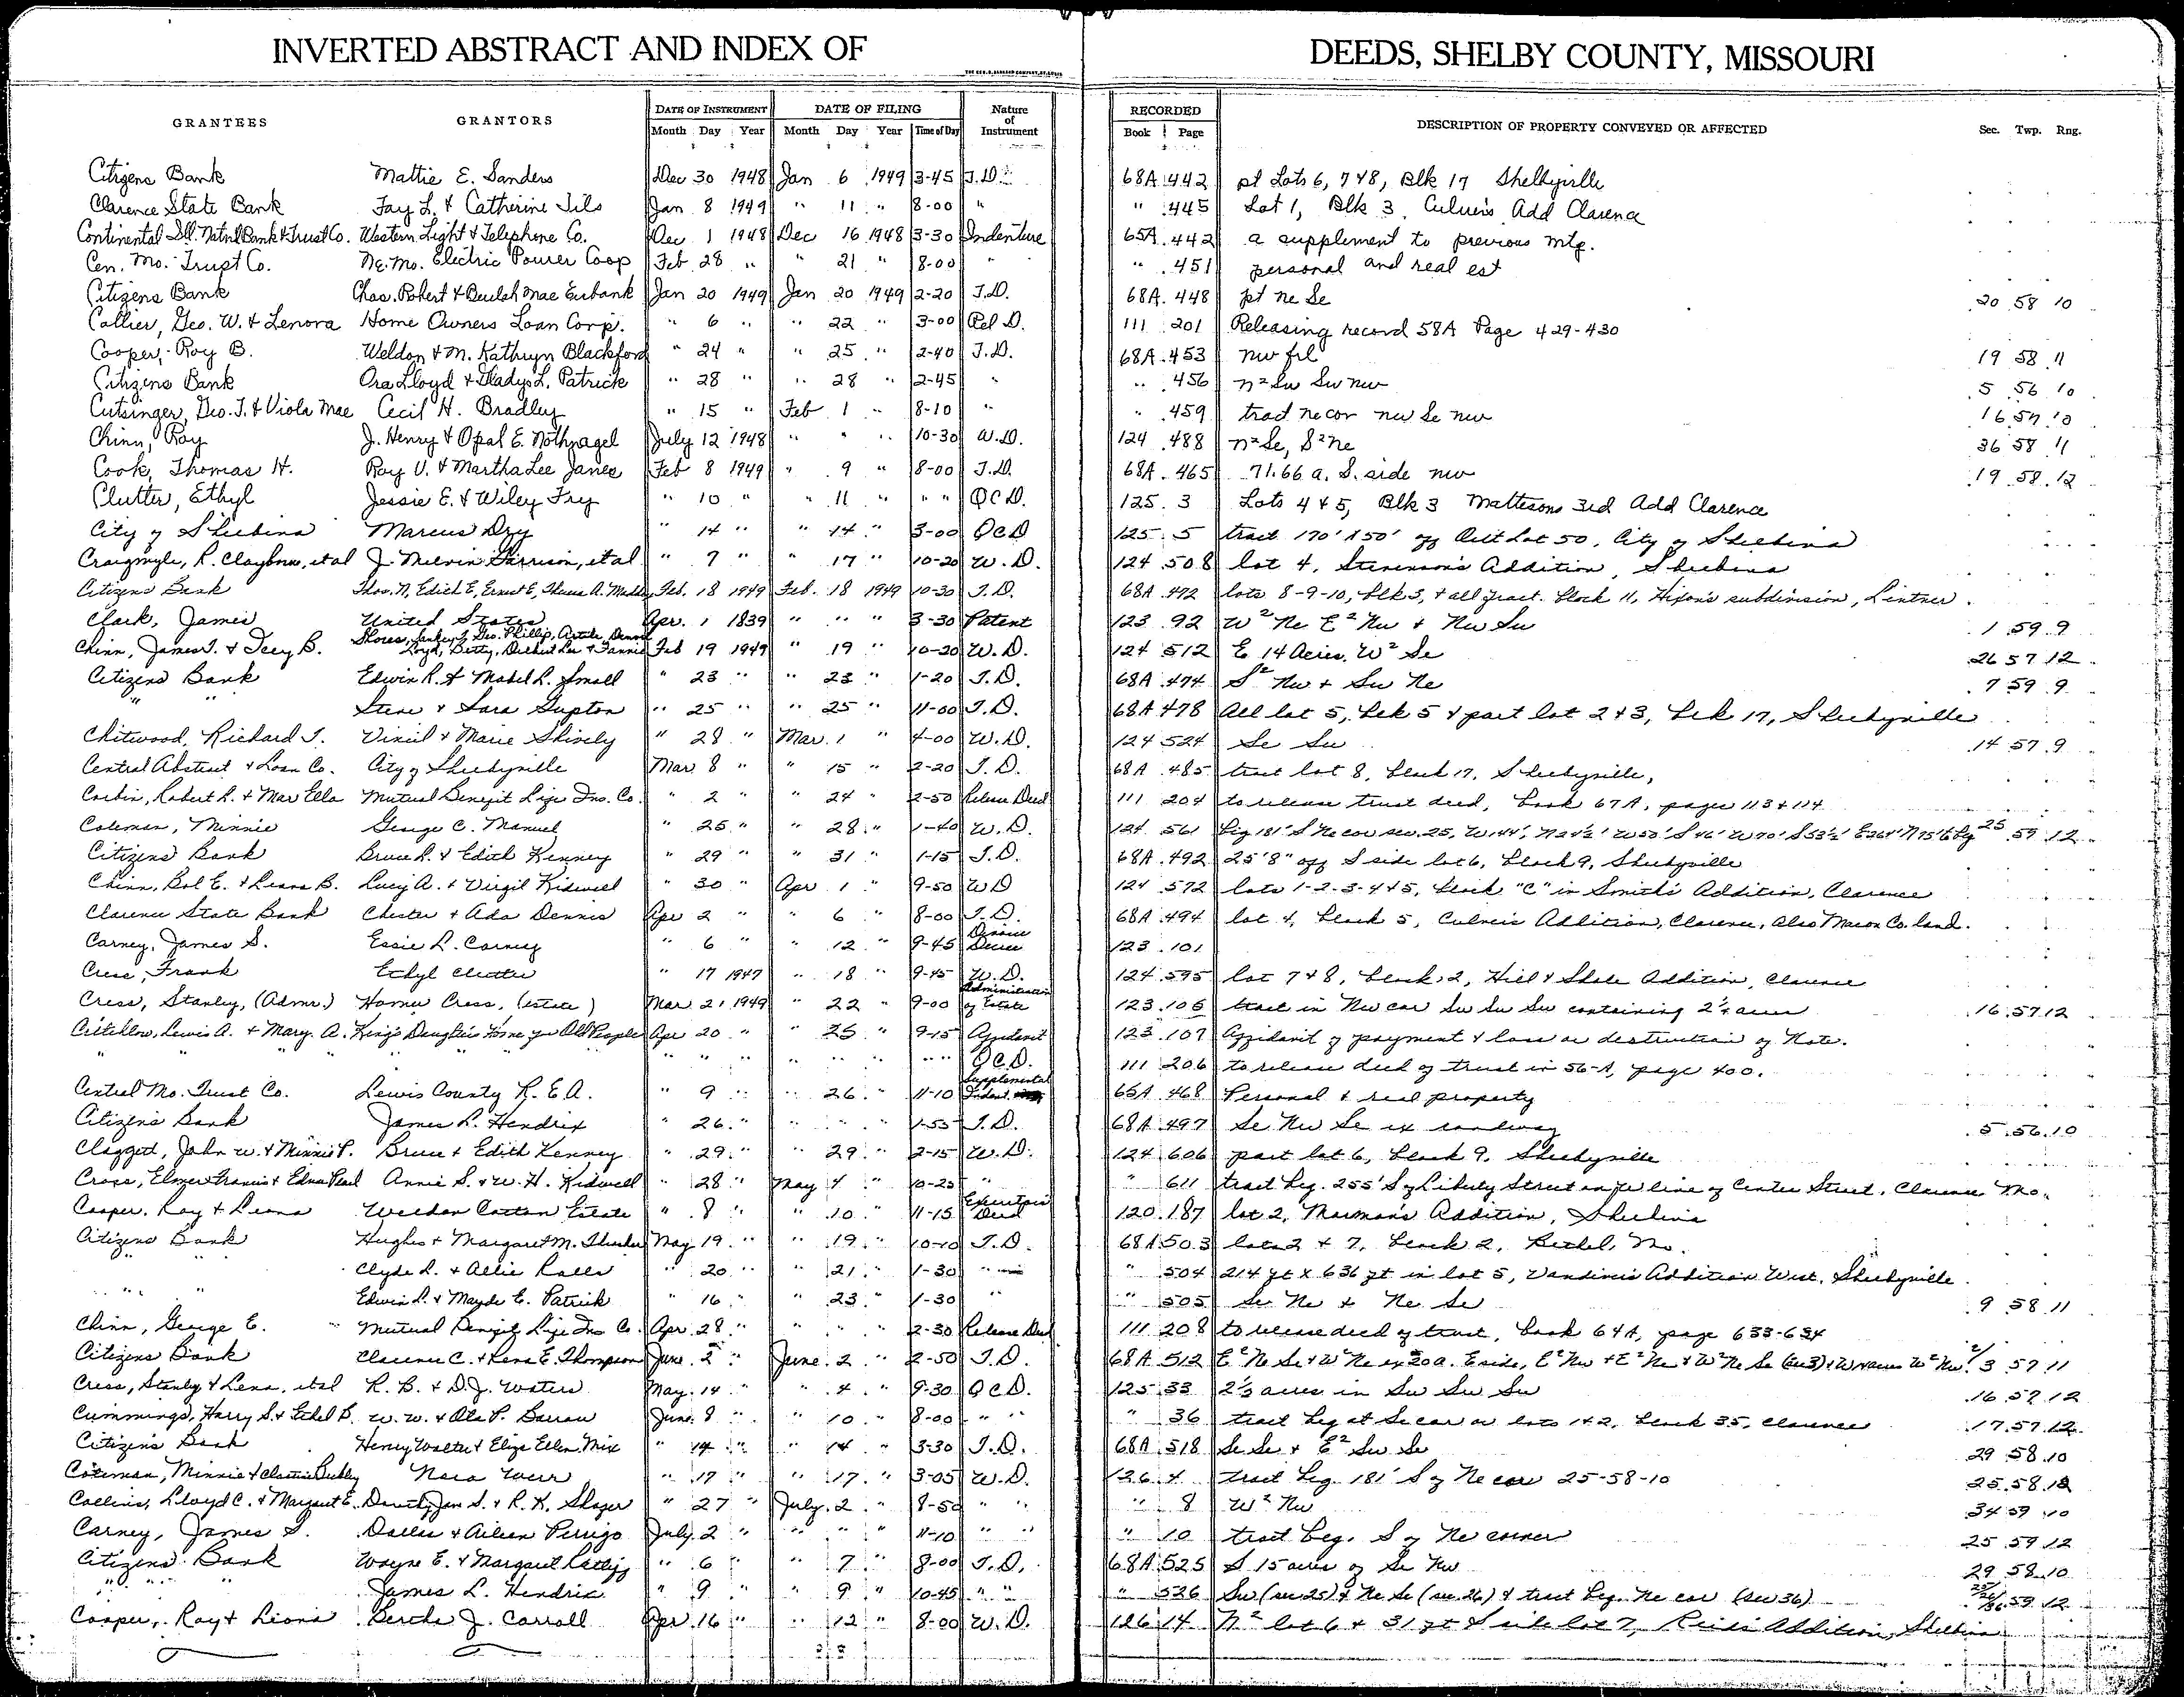 INVERTED ABSTRACT AND INDEX OF DEEDS, SHELBY COUNTY, MISSOURI
GRANTEES GRANTORS DATE OF INSTRUMENT DATE OF FILING Nature of Instrument RECORDED DESCRIPTION OF PROPERTY CONVEYED OR AFFECTED Sec. Twp. Rng.
Month Day Year Month Day Year Time of Day Book Page
Citizens Bank Mattie E. Sanders Dec 30 1948 Jan 6 1949 3-45 T.D. 68A 442 pt Lots 6, 7 & 8, Blk 17 Shelbyville
Clarence State Bank Fay L. & Catherine Tils Jan 8 1949 " 11 " 8-00 " " 445 Lot 1, Blk 3, Culver's Add Clarence
Continental Ill. Natnl Bank & Trust Co. Western Light & Telephone Co. Dec 1 1948 Dec 16 1948 3-30 Indenture 65A 442 a supplement to previous mtg.
Cen. Mo. Trust Co. Ne. Mo. Electric Power Coop Feb 28 " " 21 " 8-00 " " 451 personal and real est
Citizens Bank Chas. Robert & Beulah Mae Eubank Jan 20 1949 Jan 20 1949 2-20 T.D. 68A 448 pt ne Se 20 58 10
Collier, Geo. W. & Lenora Home Owners Loan Corp. " 6 " " 22 " 3-00 Rel D. 111 201 Releasing record 58A Page 429-430
Cooper, Roy B. Weldon & M. Kathryn Blackford " 24 " " 25 " 2-40 T.D. 68A 453 nw frl 19 58 11
Citizens Bank Ora Lloyd & Gladys L. Patrick " 28 " " 28 " 2-45 " " 456 n² Sw Sw nw 5 56 10
Cutsinger, Geo. T. & Viola Mae Cecil H. Bradley " 15 " Feb 1 " 8-10 " " 459 tract ne cor nw Se nw 16 57 10
Chinn, Roy J. Henry & Opal E. Nothnagel July 12 1948 " " " 10-30 W.D. 124 488 n² Se, S² ne 36 58 11
Cook, Thomas H. Roy V. & Martha Lee Janes Feb 8 1949 " 9 " 8-00 T.D. 68A 465 71.66 a. S. side nw 19 58 12
Clutter, Ethyl Jessie E. & Wiley Fry " 10 " " 11 " " " QCD. 125 3 Lots 4 & 5, Blk 3 Mattesons 3rd Add Clarence
City of Shelbina Marcus Dzy " 14 " " 14 " 3-00 QCD 125 5 tract 170' X 50' off Out Lot 50, City of Shelbina
Craigmyle, R. Clayborn, et al J. Melvin Garrison, et al " 7 " " 17 " 10-20 W.D. 124 508 lot 4, Stevenson's Addition, Shelbina
Citizens Bank Thos. N, Edith E, Ernest E, A. Feb. 18 1949 Feb. 18 1949 10-30 T.D. 68A 472 lots 8-9-10, blk 3, & all fract. block 11, Hixon's subdivision, Lentner
Clark, James United States Apr. 1 1839 " " " 3-30 Patent 123 92 W² Ne E² Nw & Nw Sw 1 59 9
Chinn, James T. & Icey B. Shores, Geo. Phillip, Loyd, Betty, Delbert Lee & Fannie Feb 19 1949 " 19 " 10-20 W.D. 124 512 E 14 Acres, W² Se 26 57 12
Citizens Bank Edwin R. & Mabel R. Small " 23 " " 23 " 1-20 T.D. 68A 474 S² Nw & Sw Ne 7 59 9
" " Steve & Sara Gupton " 25 " " 25 " 11-00 T.D. 68A 478 All lot 5, blk 5 & part lot 2 & 3, blk 17, Shelbyville
Chitwood, Richard T. Virgil & Marie Shively " 28 " Mar. 1 " 4-00 W.D. 124 524 Se Sw 14 57 9
Central Abstract & Loan Co. City of Shelbyville Mar 8 " " 15 " 2-20 T.D. 68A 485 tract lot 8, block 17, Shelbyville,
Corbin, Robert L. & Mar Ella Mutual Benefit Life Ins. Co. " 2 " " 24 " 2-50 Release Deed 111 204 to release trust deed, book 67A, pages 113 & 114
Coleman, Minnie George C. Manuel " 25 " " 28 " 1-40 W.D. 124 561 Beg 181' S Ne cor sec. 25, W 144', N 24½' W 50' S 46' W 70' S 53½' E 264' N 75' to beg 25 59 12
Citizens Bank Bruce L. & Edith Kenney " 29 " " 31 " 1-15 T.D. 68A 492 25'8" off S side lot 6, block 9, Shelbyville
Chinn, Bol E. & Leana B. Lucy A. & Virgil Kidwell " 30 " Apr 1 " 9-50 WD 124 572 lots 1-2-3-4 & 5, block "C" in Smith's Addition, Clarence
Clarence State Bank Chester & Ada Dennis Apr 2 " " 6 " 8-00 T.D. 68A 494 lot 4, block 5, Culver's Addition, Clarence, also Macon Co. land.
Carney, James S. Essie L. Carney " 6 " " 12 " 9-45 Divorce Decree 123 101
Cress, Frank Ethyl Clutter " 17 1947 " 18 " 9-45 W.D. 124 595 lot 7 & 8, block 2, Hill & Shale Addition, Clarence
Cress, Stanley, (Admr.) Homer Cress, (estate) Mar 21 1949 " 22 " 9-00 Administration of Estate 123 105 tract in Nw cor Sw Sw Sw containing 2½ acres 16 57 12
Critchlow, Lewis A. & Mary A. King's Daughters Home for Old People Apr 20 " " 25 " 9-15 Affidavit 123 107 Affidavit of payment & loss or destruction of Note.
" " " " " " " " " " " " QCD. 111 206 to release deed of trust in 56-A, page 400.
Central Mo. Trust Co. Lewis County R.E.A. " 9 " " 26 " 11-10 Supplemental Indent. 65A 468 Personal & real property
Citizens Bank James L. Hendrix " 26 " " " " 1-55 T.D. 68A 497 Se Nw Se ex roadway 5 56 10
Claggett, John W. & Minnie P. Bruce & Edith Kenney " 29 " " 29 " 2-15 W.D. 124 606 part lot 6, block 9, Shelbyville
Cross, Elmer Francis & Edna Pearl Annie S. & W.H. Kidwell " 28 " May 4 " 10-25 " " 611 tract beg. 255' S of Liberty Street on W line of Center Street, Clarence Mo.
Cooper, Roy & Leona Weldon Cotton Estate " 8 " " 10 " 11-15 Executors Deed 120 187 lot 2, Marman's Addition, Shelbina
Citizens Bank Hughes & Margaret M. May 19 " " 19 " 10-10 T.D. 68A 503 lots 2 & 7, block 2, Bethel, Mo.
" " Clyde L. & Allie Ralls " 20 " " 21 " 1-30 " " 504 214 ft x 636 ft in lot 5, Vandiver's Addition West, Shelbyville
" " Edwin L. & Mayde E. Patrick " 16 " " 23 " 1-30 " " 505 Se Ne & Ne Se 9 58 11
Chinn, George E. Mutual Benefit Life Ins Co. Apr. 28 " " " " 2-30 Release Deed 111 208 to release deed of trust, book 64A, page 633-634
Citizens Bank Clarence C. & Rena E. Thompson June 2 " June 2 " 2-50 T.D. 68A 512 E² Ne Se & W² Ne ex 20 a. E side, E² Nw & E² Ne & W² Ne Se (sec 3) & W² Nw 2/3 57 11
Cress, Stanly & Lena, et al R.B. & D.J. Waters May 14 " " 4 " 9-30 QCD. 125 33 2½ acres in Sw Sw Sw 16 57 12
Cummings, Harry S. & Ethel B. W.W. & Ola P. Barrow June 8 " " 10 " 8-00 " " " 36 tract beg at Se cor lots 1 & 2, block 35, Clarence 17 57 12
Citizens Bank Henry Walter & Eliza Ellen Mix " 14 " " 14 " 3-30 T.D. 68A 518 Se Se & E² Sw Se 29 58 10
Coleman, Minnie & Nora Weir " 17 " " 17 " 3-05 W.D. 126 4 tract beg. 181' S of Ne cor 25-58-10 25 58 10
Collins, Lloyd C. & Margaret E. Dorothy Jan S. & R.K. Slager " 27 " July 2 " 8-50 " " " 8 W² Nw 34 59 10
Carney, James S. Dallas & Aileen Perrigo July 2 " " " " 11-10 " " " 10 tract beg. S of Ne corner 25 59 12
Citizens Bank Wayne E. & Margaret " 6 " " 7 " 8-00 T.D. 68A 525 S 15 acres of Se Nw 29 58 10
" " James L. Hendrix " 9 " " 9 " 10-45 " " " 526 Sw (sec 25) & Ne Se (sec. 26) & tract beg. Ne cor (sec 36) 25/26/36 59 12
Cooper, Roy & Leona Bertha J. Carroll Apr. 16 " " 12 " 8-00 W.D. 126 14 N² lot 6 & 31 ft S side lot 7, Addition, Shelbina